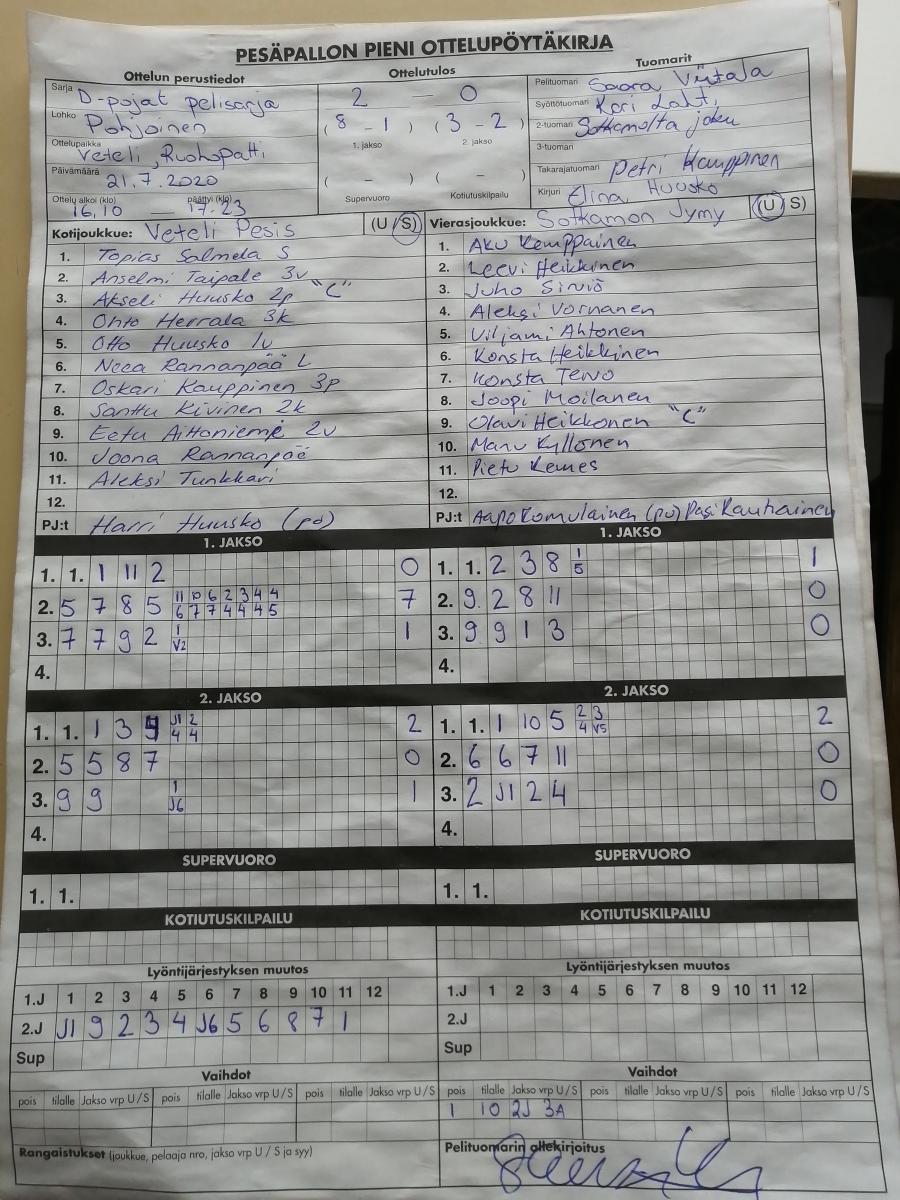 PESÄPALLON PIENI OTTELUPÖYTÄKIRJA
Ottelun perustiedot
Sarja D-pojat pelisarja
Lohko Pohjoinen
Ottelupaikka Veteli, Ruohopatti
Päivämäärä 21.7.2020
Ottelu alkoi (klo) päättyi (klo)
16,10 — 17.23
Ottelutulos
2 — 0
( 8 - 1 ) ( 3 - 2 )
1. jakso 2. jakso
( - ) ( - )
Supervuoro Kotiutuskilpailu
Tuomarit
Pelituomari Saara Viitala
Syöttötuomari Kari Lahti
2-tuomari Sotkamolta joku
3-tuomari
Takarajatuomari Petri Kauppinen
Kirjuri Elina Huusko
Kotijoukkue: Veteli Pesis (U S)
1. Topias Salmela S
2. Anselmi Taipale 3v
3. Akseli Huusko 2p "C"
4. Ohto Herrala 3k
5. Otto Huusko 1v
6. Neea Rannanpää L
7. Oskari Kauppinen 3p
8. Santtu Kivinen 2k
9. Eetu Aittoniemi 2v
10. Joona Rannanpää
11. Aleksi Tunkkari
12.
PJ:t Harri Huusko (po)
Vierasjoukkue: Sotkamon Jymy (U S)
1. Aku Kemppainen
2. Leevi Heikkinen
3. Juho Sirviö
4. Aleksi Vornanen
5. Viljami Ahtonen
6. Konsta Heikkinen
7. Konsta Tervo
8. Joopi Moilanen
9. Olavi Heikkonen "C"
10. Manu Kyllönen
11. Pietu Kemes
12.
PJ:t Aapo Komulainen (pu) Pasi Rautiainen
1. JAKSO
1. 1. 1 11 2 0
2. 5 7 8 5 11 10 6 2 3 4 4 7
6 7 7 4 4 4 5
3. 7 7 9 2 1 1
V2
4.
1. JAKSO
1. 1. 2 3 8 1 1
5
2. 9 2 8 11 0
3. 9 9 1 3 0
4.
2. JAKSO
1. 1. 1 3 J1 2 2
4 4
2. 5 5 8 7 0
3. 9 9 1 1
J6
4.
2. JAKSO
1. 1. 1 10 5 2 3 2
4 V5
2. 6 6 7 11 0
3. 2 J1 2 4 0
4.
SUPERVUORO
1. 1.
SUPERVUORO
1. 1.
KOTIUTUSKILPAILU
KOTIUTUSKILPAILU
Lyöntijärjestyksen muutos
1.J 1 2 3 4 5 6 7 8 9 10 11 12
2.J J1 9 2 3 4 J6 5 6 8 7 1
Sup
Lyöntijärjestyksen muutos
1.J 1 2 3 4 5 6 7 8 9 10 11 12
2.J
Sup
Vaihdot
pois tilalle Jakso vrp U/S pois tilalle Jakso vrp U/S pois tilalle Jakso vrp U/S
Vaihdot
pois tilalle Jakso vrp U/S pois tilalle Jakso vrp U/S pois tilalle Jakso vrp U/S
1 10 2J 3A
Rangaistukset (joukkue, pelaaja nro, jakso vrp U / S ja syy)
Pelituomarin allekirjoitus